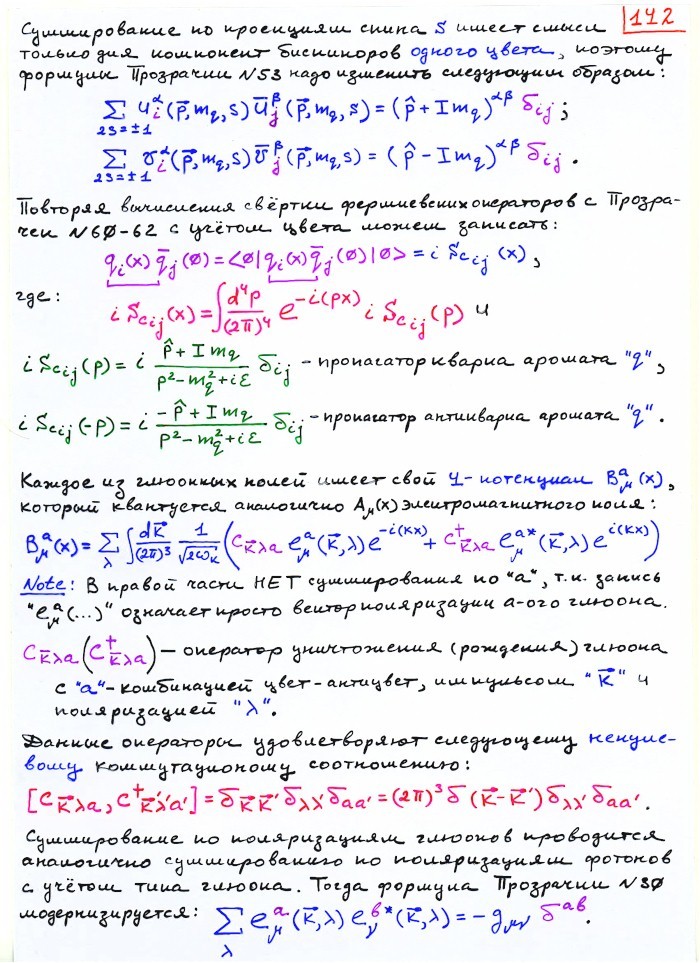 142
Суммирование по проекциям спина S имеет смысл
только для компонент биспиноров одного цвета, поэтому
формулы Прозрачки №53 надо изменить следующим образом:
∑_{2s=±1} u_i^α(p⃗,m_q,s) ū_j^β(p⃗,m_q,s) = (p̂ + I m_q)^{αβ} δ_{ij};
∑_{2s=±1} v_i^α(p⃗,m_q,s) v̄_j^β(p⃗,m_q,s) = (p̂ − I m_q)^{αβ} δ_{ij}.
Повторяя вычисления свёртки фермиевских операторов с Прозра-
чек №60-62 с учётом цвета можем записать:
q_i(x) q̄_j(0) = <0|q_i(x) q̄_j(0)|0> = i S_{c ij}(x),
где: i S_{c ij}(x) = ∫ d⁴p/(2π)⁴ e^{−i(px)} i S_{c ij}(p) и
i S_{c ij}(p) = i (p̂ + I m_q)/(p² − m_q² + iε) δ_{ij} – пропагатор кварка аромата "q",
i S_{c ij}(-p) = i (−p̂ + I m_q)/(p² − m_q² + iε) δ_{ij} – пропагатор антикварка аромата "q".
Каждое из глюонных полей имеет свой 4-потенциал B_μ^a(x),
который квантуется аналогично A_μ(x) электромагнитного поля:
B_μ^a(x) = ∑_λ ∫ dk⃗/(2π)³ 1/√(2ω_k) (c_{k⃗λa} e_μ^a(k⃗,λ) e^{−i(kx)} + c†_{k⃗λa} e_μ^{a*}(k⃗,λ) e^{i(kx)})
Note: В правой части НЕТ суммирования по "a", т.к. запись
"e_μ^a(...)" означает просто вектор поляризации a-ого глюона.
c_{k⃗λa} (c†_{k⃗λa}) – оператор уничтожения (рождения) глюона
с "a"-комбинацией цвет-антицвет, импульсом "k⃗" и
поляризацией "λ".
Данные операторы удовлетворяют следующему ненуле-
вому коммутационому соотношению:
[c_{k⃗λa}, c†_{k⃗'λ'a'}] = δ_{k⃗k⃗'} δ_{λλ'} δ_{aa'} = (2π)³ δ(k⃗−k⃗') δ_{λλ'} δ_{aa'}.
Суммирование по поляризациям глюонов проводится
аналогично суммированию по поляризациям фотонов
с учётом типа глюона. Тогда формула Прозрачки №30
модернизируется: ∑_λ e_μ^a(k⃗,λ) e_ν^{b*}(k⃗,λ) = −g_{μν} δ^{ab}.